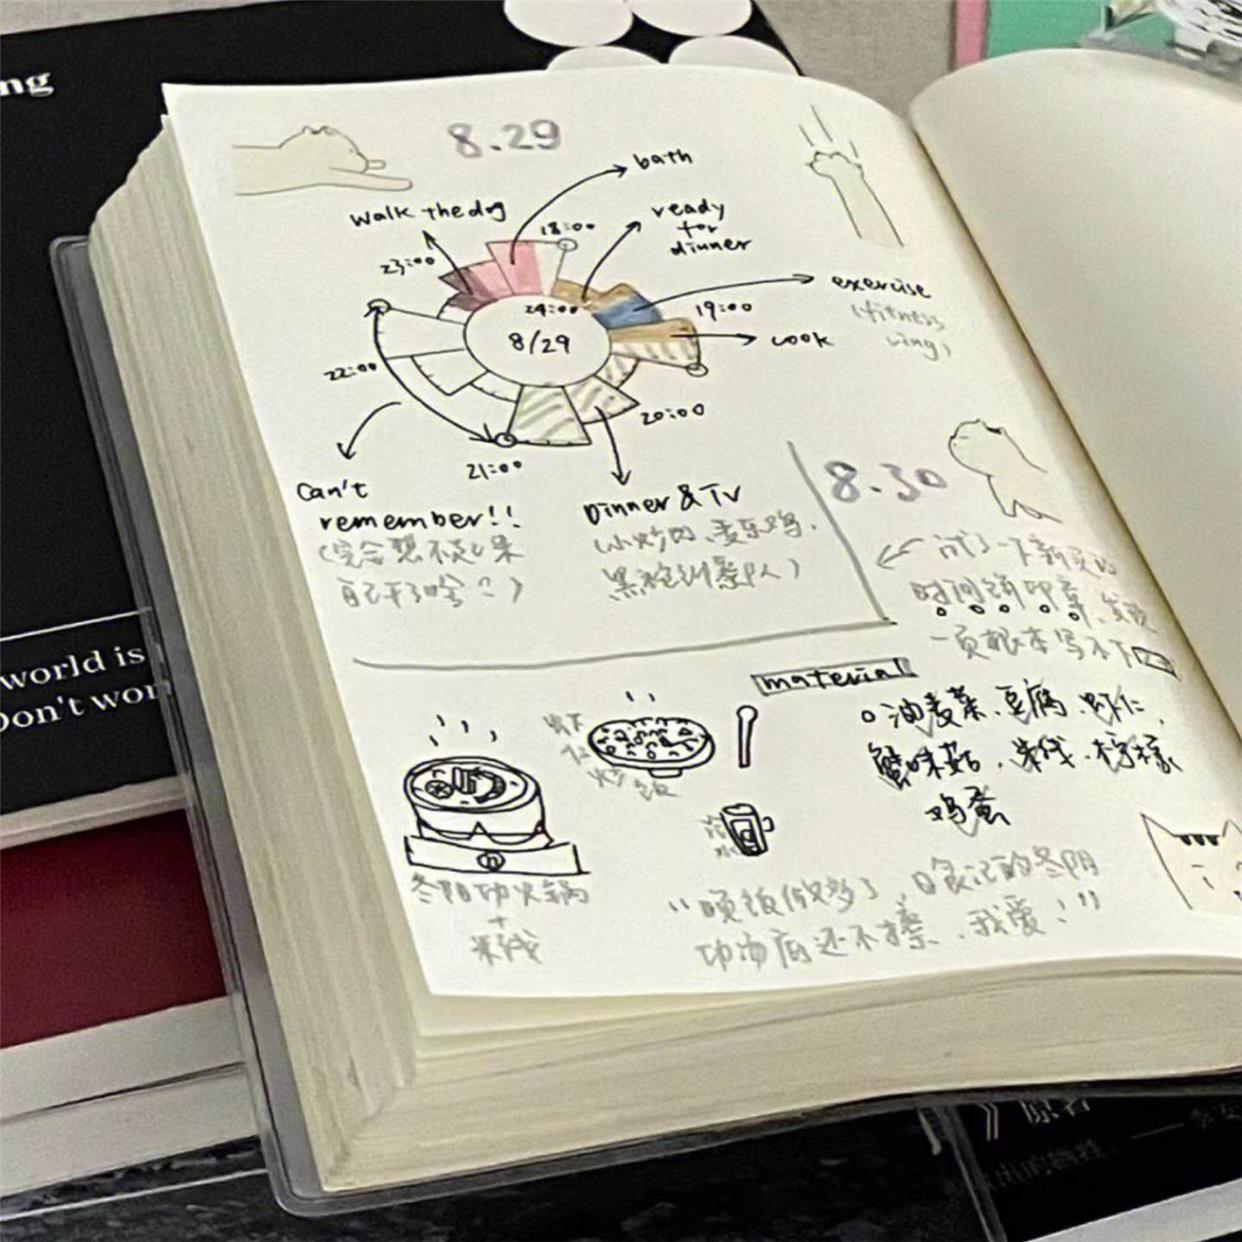 ng
world is
Don't wor
8.29
bath
walk the dog
18:00
ready
for
dinner
23:00
24:00
exercise
(fitness
19:00
8/29
cook
22:00
20:00
21:00
Can't
remember!!
(完全想不起来
自己干了啥?)
Dinner & TV
(小炒肉、麦乐鸡、
8.30
试了一下新买的
时间轴印章,发现
一页根本写不下
material
油麦菜、豆腐、虾仁、
蟹味菇、米线、柠檬
鸡蛋
冬阴功火锅
+
米线
炒饭
"顿饭做多了,日食记的冬阴
功汤底还不错、我爱!"